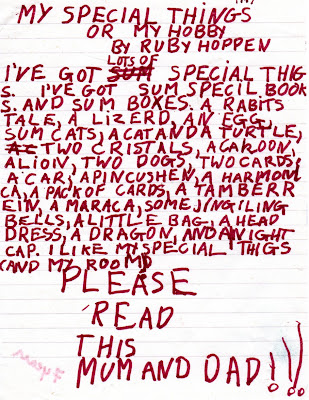 MY SPECIAL THINGS
OR MY HOBBY
BY RUBY HOPPEN
I'VE GOT LOTS OF SPECIAL THIG
S. I'VE GOT SUM SPECIL BOOK
S. AND SUM BOXES. A RABITS
TALE, A LIZERD, AN EGG,
SUM CATS, A CAT AND A TURTLE,
TWO CRISTALS, A CAROON,
A LION, TWO DOGS, TWO CARDS,
A CAR, A PINCUSHEN, A HARMONI
CA, A PACK OF CARDS, A TAMBERR
EIN, A MARACA, SOME JINGILING
BELLS, A LITTLE BAG, A HEAD
DRESS, A DRAGON, AND A NIGHT
CAP. I LIKE MY SPECIAL THIGS
(AND MY ROOM)
PLEASE
READ
THIS
MUM AND DAD!!!